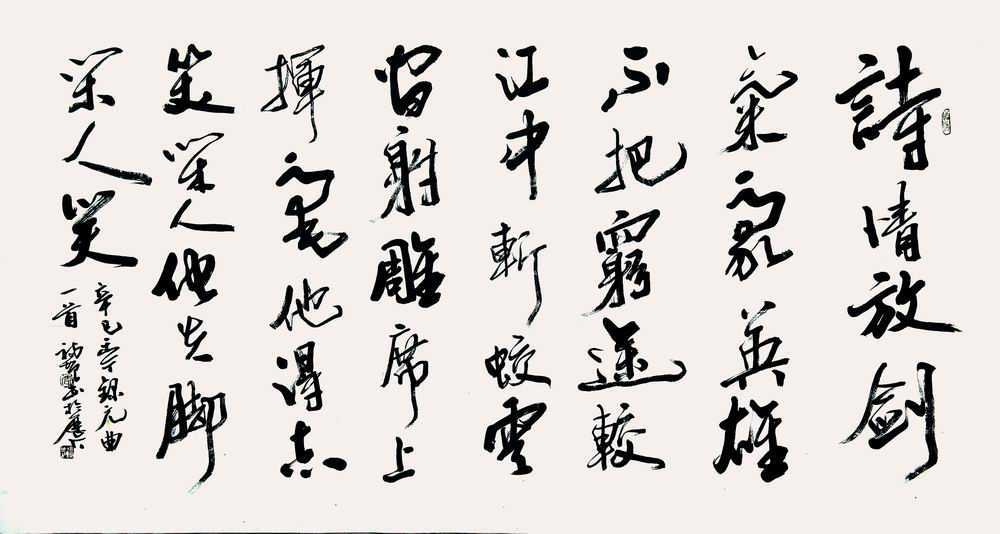 詩情放劍
氣豪英雄
不把窮通較
江中斬蛟雲
間射雕席上
揮毫他得志
笑閑人他失脚
閑人笑
辛巳錄元曲
一首於歷下